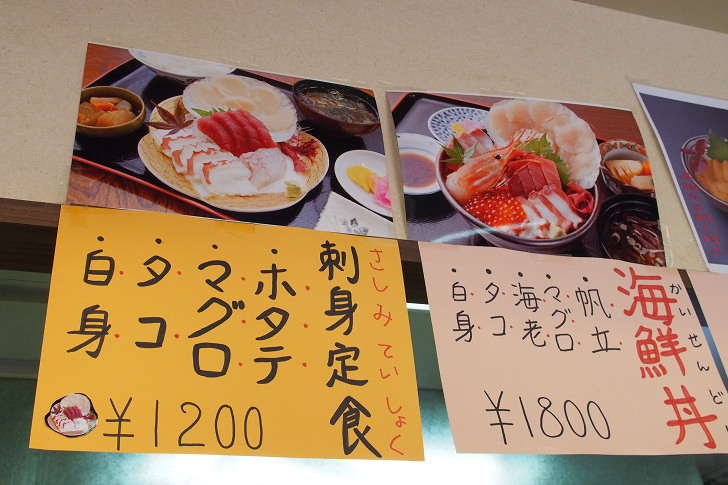 刺身定食
さしみていしょく
・ホタテ
・マグロ
・タコ
・白身
¥1200
海鮮丼
かいせんど
・帆立
・マグロ
・海老
・タコ
・白身
¥1800